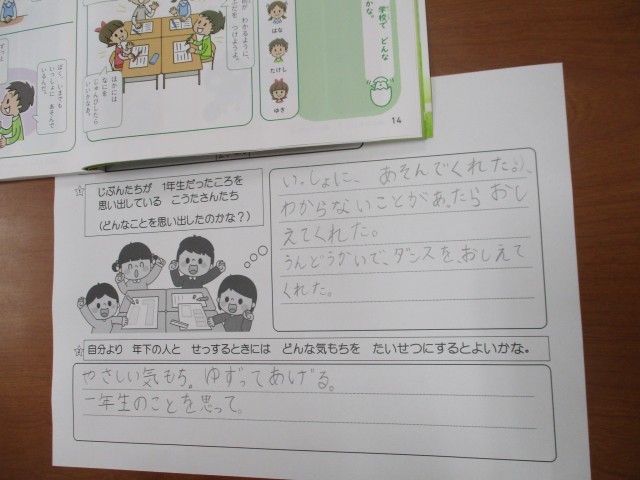 学校で どんな
かな。
はな
たけし
ゆき
14
前が わかるように、
つけようよ。
ほかには
なにを
じゅんびしたら
いいかなあ。
ぼく、いまでも
いっしょに あそんで
いるんだ。
じぶんたちが 1年生だったころを
思い出している こうたさんたち
(どんなことを思い出したのかな?)
いっしょに、 あそんでくれた。
わからないことがあったら おし
えてくれた。
うんどうかいで、ダンスを、おしえて
くれた。
自分より 年下の人と せっするときには どんな気もちを たいせつにするとよいかな。
やさしい気もち。ゆずってあげる。
一年生のことを思って。